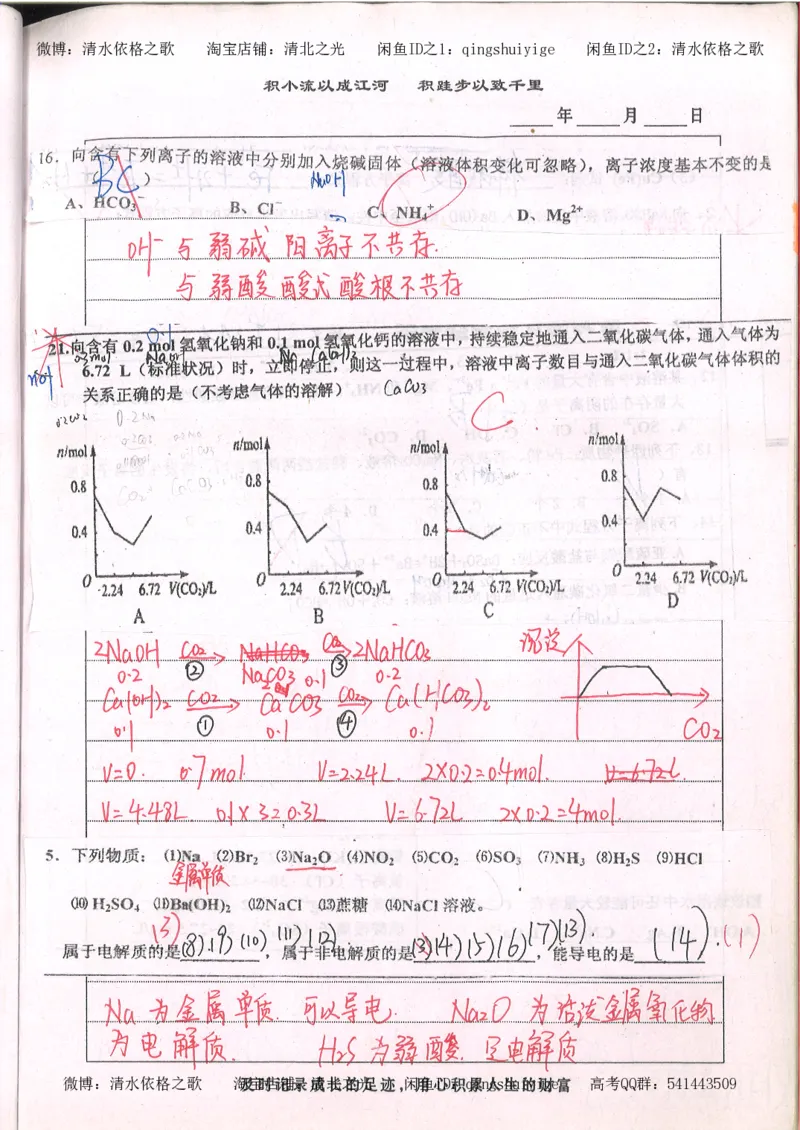 微博：清水依格之歌 淘宝店铺：清北之光 闲鱼ID之1：qingshuiyige 闲鱼ID之2：清水依格之歌
积小流以成江河 积跬步以致千里
年 月 日
16．向含有下列离子的溶液中分别加入烧碱固体（溶液体积变化可忽略），离子浓度基本不变的是
（BC） NaOH
A、HCO₃⁻ B、Cl⁻ C、NH₄⁺ D、Mg²⁺
OH⁻与弱碱阳离子不共存.
与弱酸酸式酸根不共存
21.向含有 0.2 mol 氢氧化钠和 0.1 mol 氢氧化钙的溶液中，持续稳定地通入二氧化碳气体，通入气体为
6.72 L（标准状况）时，立即停止，则这一过程中，溶液中离子数目与通入二氧化碳气体体积的
关系正确的是（不考虑气体的溶解） CaCO3
C
n/mol n/mol n/mol n/mol
0.8 0.8 0.8 0.8
0.4 0.4 0.4 0.4
O 2.24 6.72 V(CO₂)/L O 2.24 6.72 V(CO₂)/L O 2.24 6.72 V(CO₂)/L O 2.24 6.72 V(CO₂)/L
A B C D
2NaOH CO2 ② NaHCO3 ③ 2NaHCO3 沉淀
0.2 Na2CO3 0.1 0.2
Ca(OH)2 CO2 ① CaCO3 CO2 ④ Ca(HCO3)2
0.1 0.1 0.1 CO2
V=0. 0.7mol V=2.24L. 2×0.2=0.4mol. V=6.72L
V=4.48L 0.1×3=0.3L V=6.72L 2×0.2=4mol.
5．下列物质： ⑴Na ⑵Br₂ ⑶Na₂O ⑷NO₂ ⑸CO₂ ⑹SO₃ ⑺NH₃ ⑻H₂S ⑼HCl
金属单质
⑽ H₂SO₄ ⑾Ba(OH)₂ ⑿NaCl ⒀蔗糖 ⒁NaCl 溶液。
属于电解质的是(3)(8)(9)(10)(11)(12)，属于非电解质的是(3)(4)(5)(6)(7)(13)，能导电的是(14).(1)
Na为金属单质 可以导电. Na2O为活泼金属氧化物
为电解质. H2S为弱酸 是电解质
微博：清水依格之歌 及时记录成长的足迹，用心积累人生的财富 高考QQ群：541443509